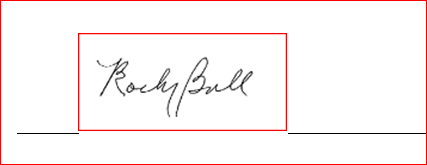 Rocky Ball